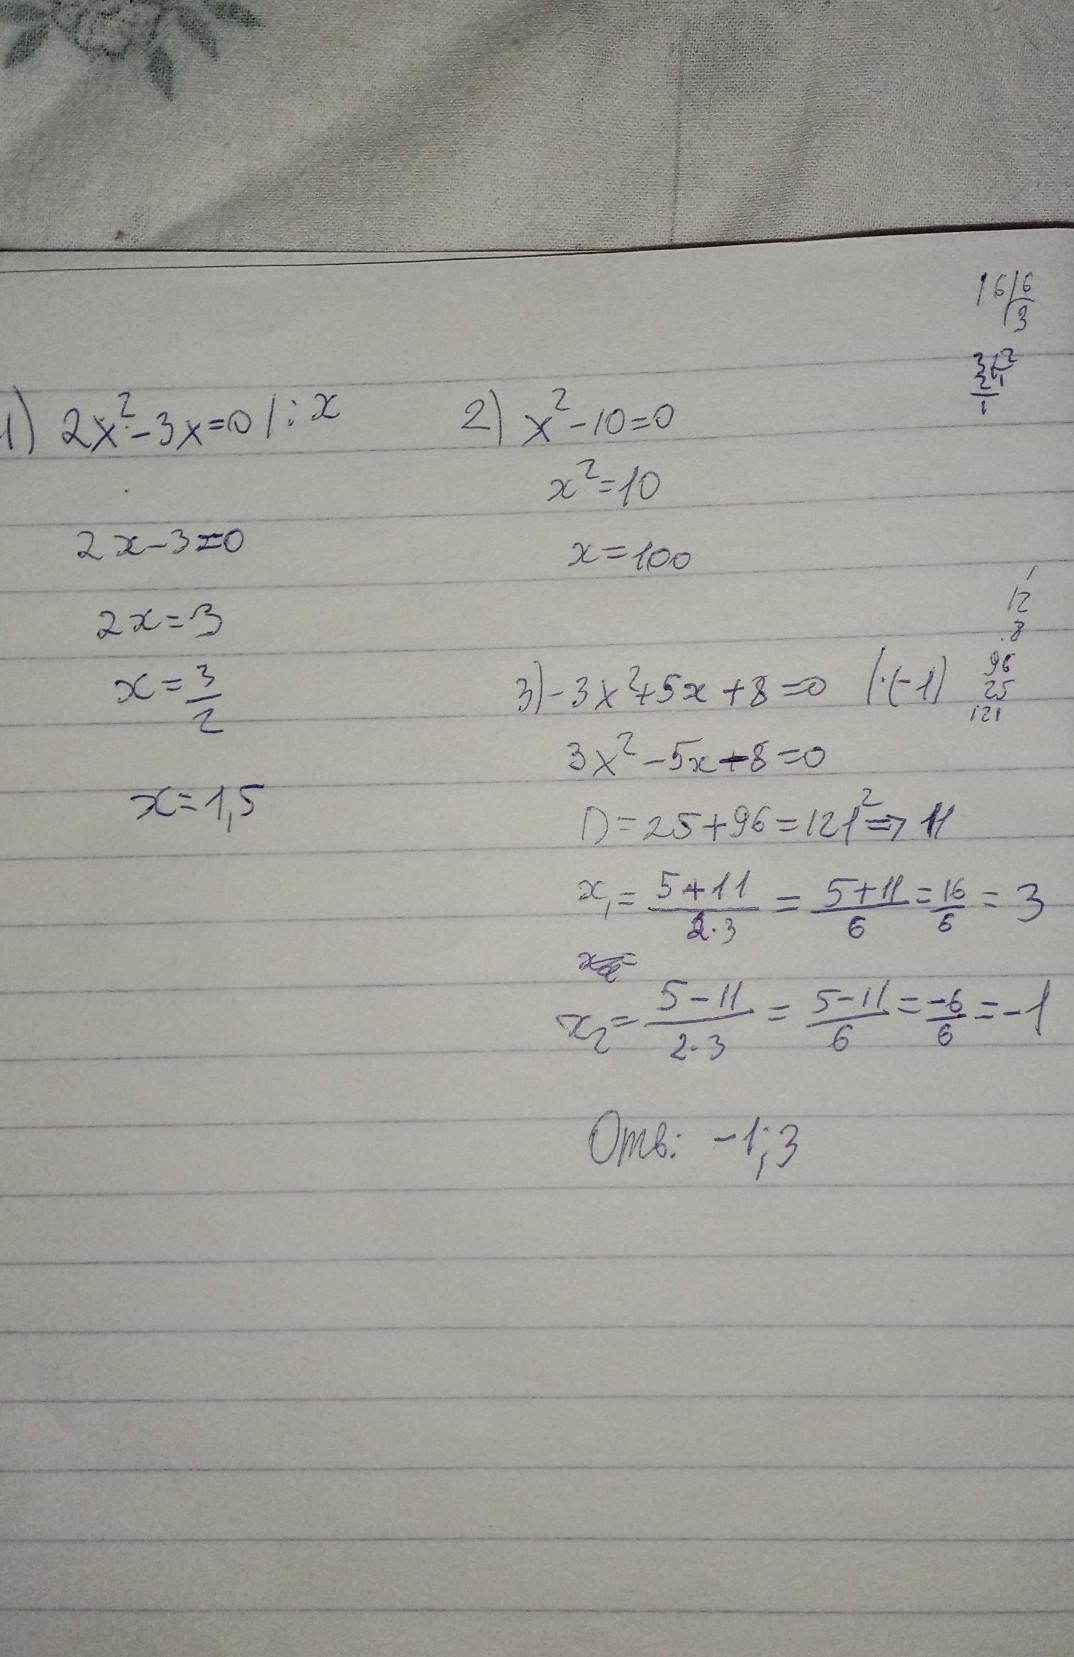 16|6
3
3|2
2 1
1
1) 2x²-3x=0 | : x
2x-3=0
2x=3
x=3/2
x=1,5
2) x²-10=0
x²=10
x=100
12
8
96
25
121
3) -3x²+5x+8=0 |·(-1)
3x²-5x-8=0
D=25+96=121²=>11
x₁=5+11/2·3=5+11/6=16/6=3
x₂=5-11/2·3=5-11/6=-6/6=-1
Отв: -1;3